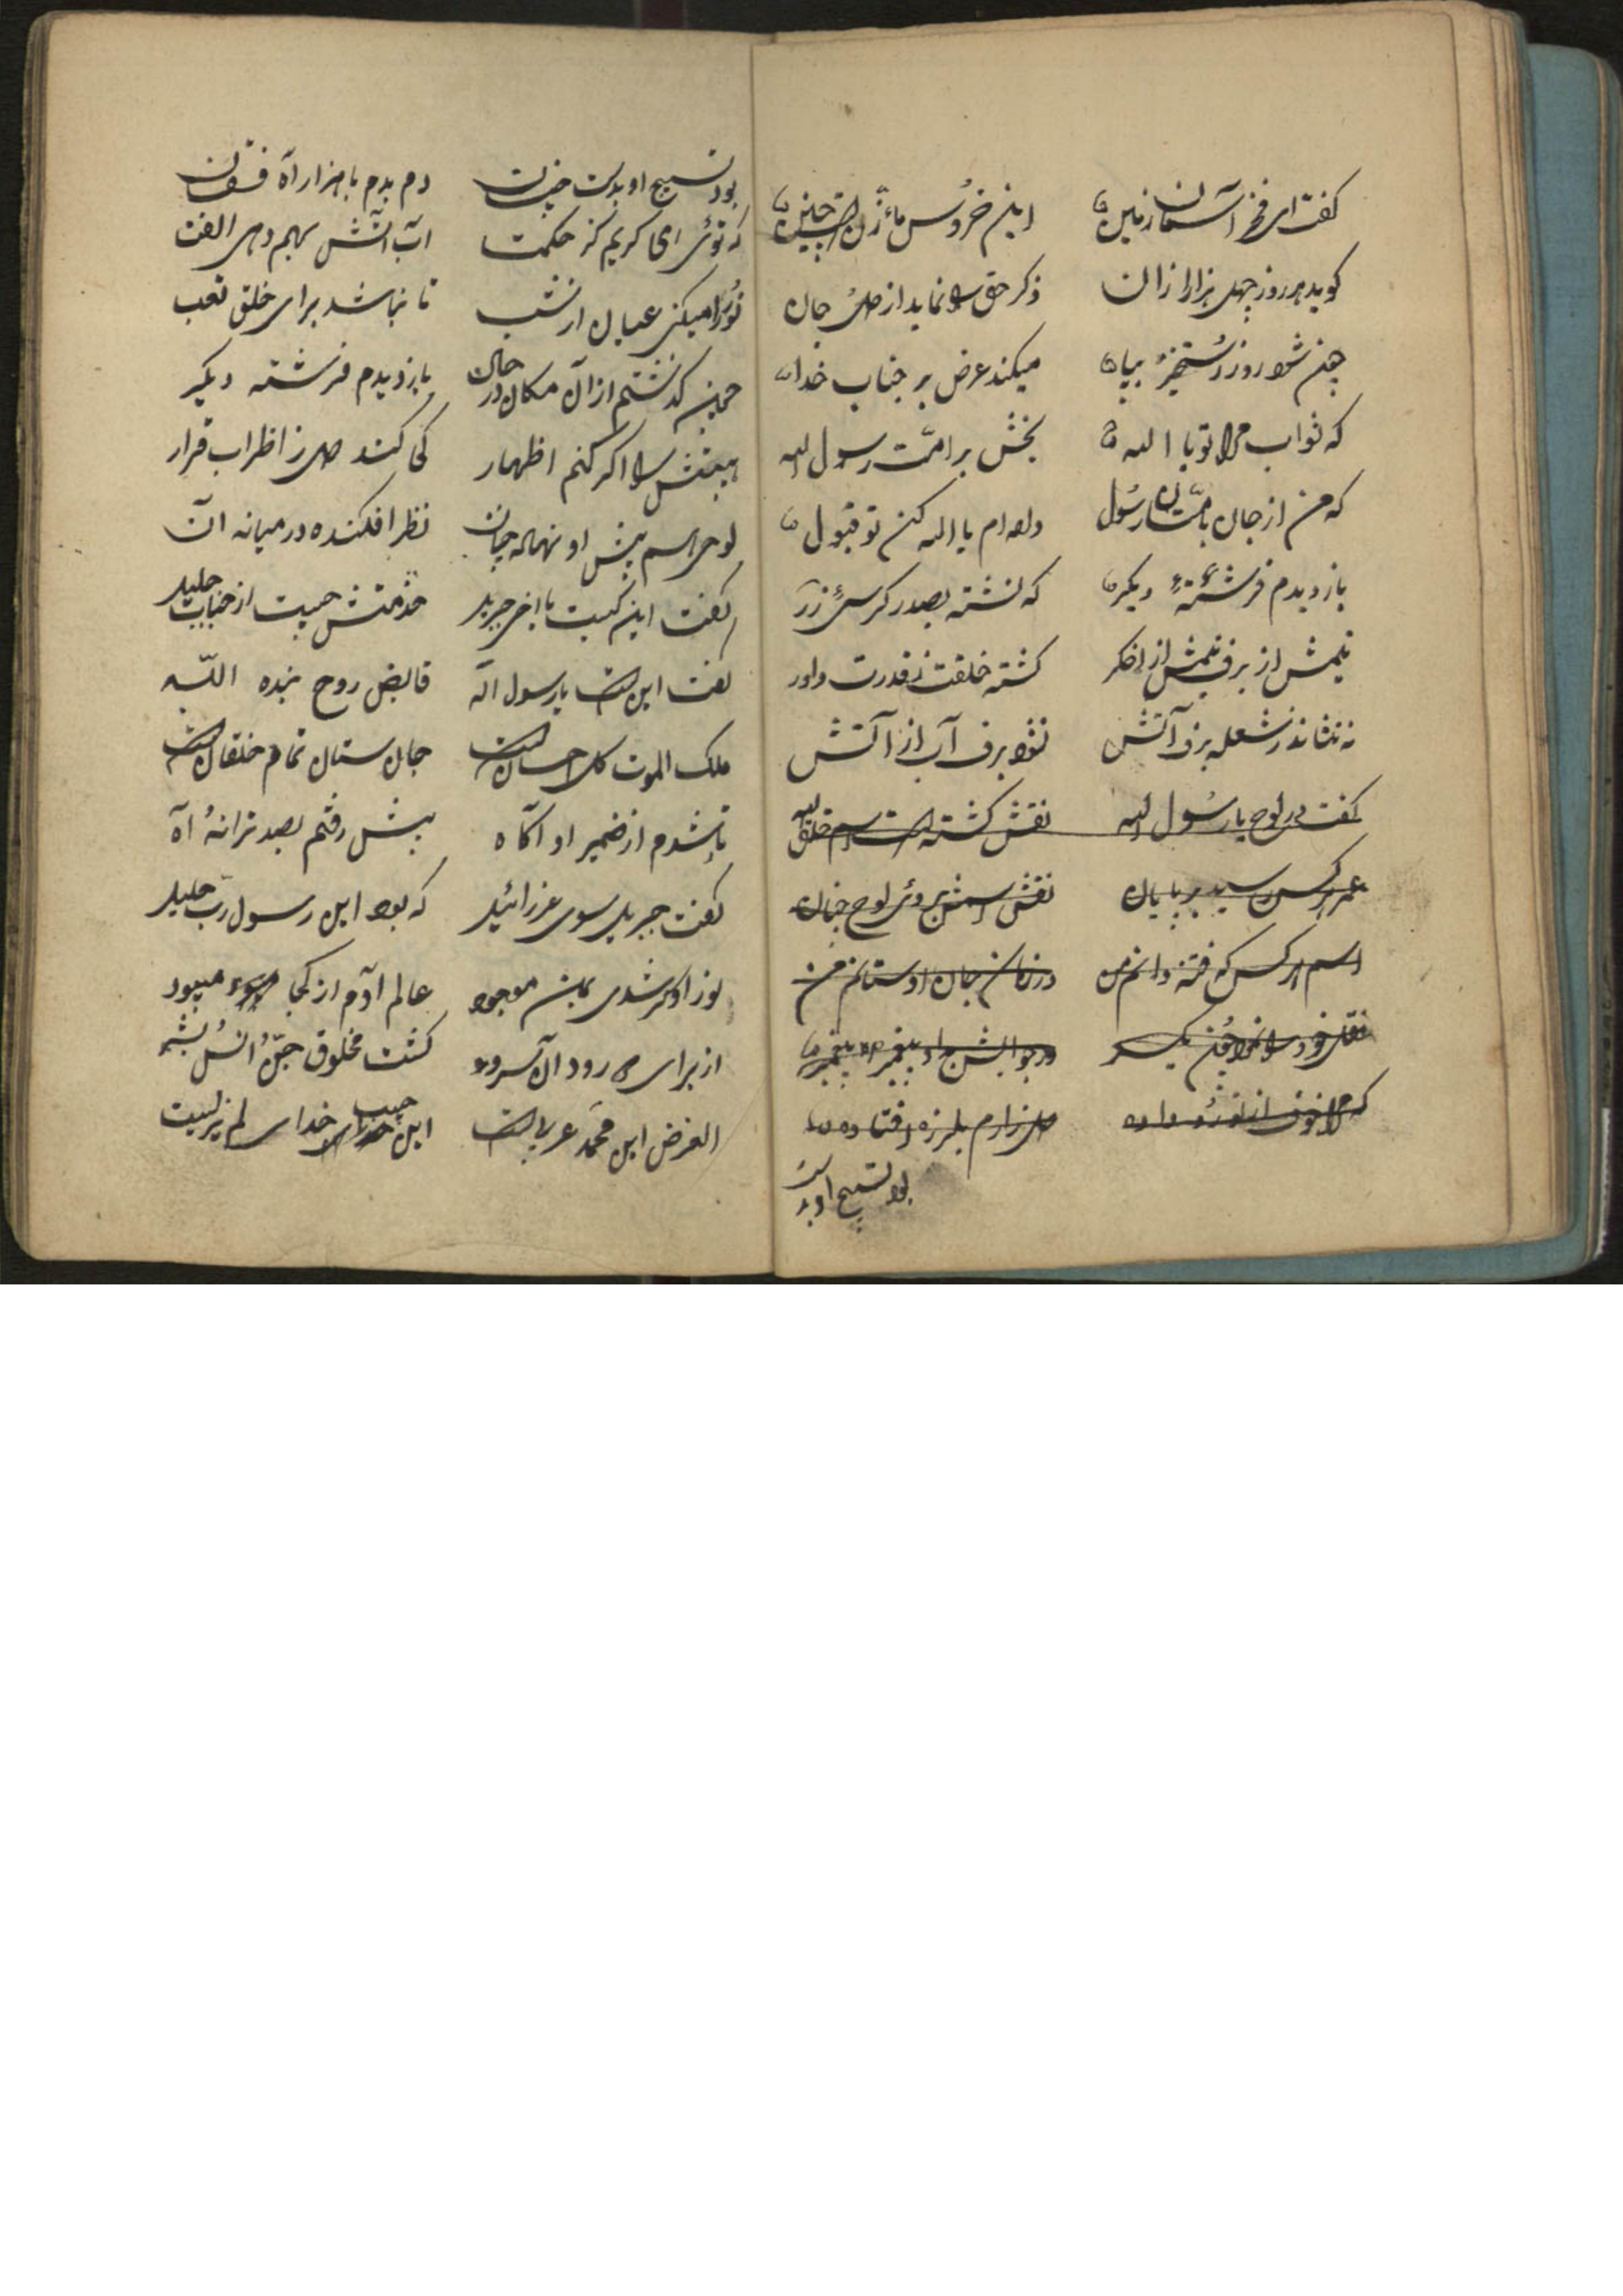 کفت ای فخر آسمان زمین این خروس مانه ژن است چنین
کوید هر روز چهل هزار اذان ذکر حق را نماید از دل جان
چون شود روز رستخیز بپا میکند عرض بر جناب خدا
که ثواب مرا تو یا الله بخش بر امت رسول الله
که من از جان بامتان رسول داده ام یا اله کن تو قبول
باز دیدم فرشته دیکر که نشسته بصدر کرسی زر
نیمش از برف نیمش از اخکر کشته خلقت ز قدرت داور
نه نشاند ز شعله برف آتش نشود برف آب از آتش
کفت در لوح یا رسول الله نقش کشته است اسم خلق اله
عمر هر کس رسید بر پایان نقش اسمش بروی لوح
اسم هر کس که رفته دانم من در زمان جان او ستانم من
نقل خود را نمود چون یکسر در جوابش
که مرا خوف از تو رو داده دل زارم بلرزه افتاده
بود تسبیح او بدست
بود تسبیح او بدست دم بدم با هزار آه فغان
که توئی ای کریم کز حکمت آب آتش بهم دهی الفت
نور را میکنی عیان از شب تا نباشد برای خلق تعب
چون کذشتم از آن مکان در حال باز دیدم فرشته دیکر
هیبتش را اکر کنم اظهار کی کند دل ز اظراب قرار
لوحی اسم پیش او نهاده چنان نظر افکنده در میانه آن
کفت این کیست یا اخی جبریل خدمتش چیست از جناب جلیل
کفت این است یا رسول اله قابض روح بنده الله
ملک الموت کل احسان است جان ستان تمام خلقان است
تا شدم از ضمیر او آکاه پیش رفتم بصد ترانه آه
کفت جبریل سوی عزرائیل که بود این رسول رب جلیل
نور او کر نشدی موجود عالم آدم از کجا میبود
از برای رود آن سرور کشت مخلوق جن انس بشر
الغرض این محمد عربی است این حبیب خدای لم یزلیست